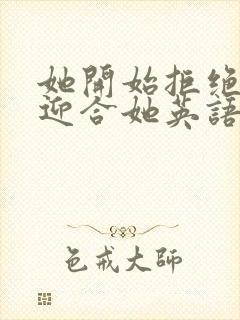 她開始拒绝
迎合她英語
色戒大師